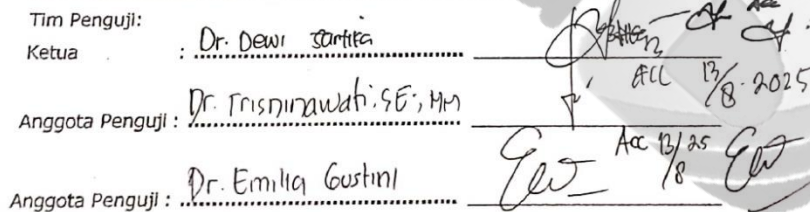 Tim Penguji:
Acc
Ketua : Dr. Dewi Sartika
ACC 13/8-2025
Anggota Penguji : Dr. Trisninawati.SE., MM
Acc 13/8 25
Anggota Penguji : Dr. Emilia Gustini